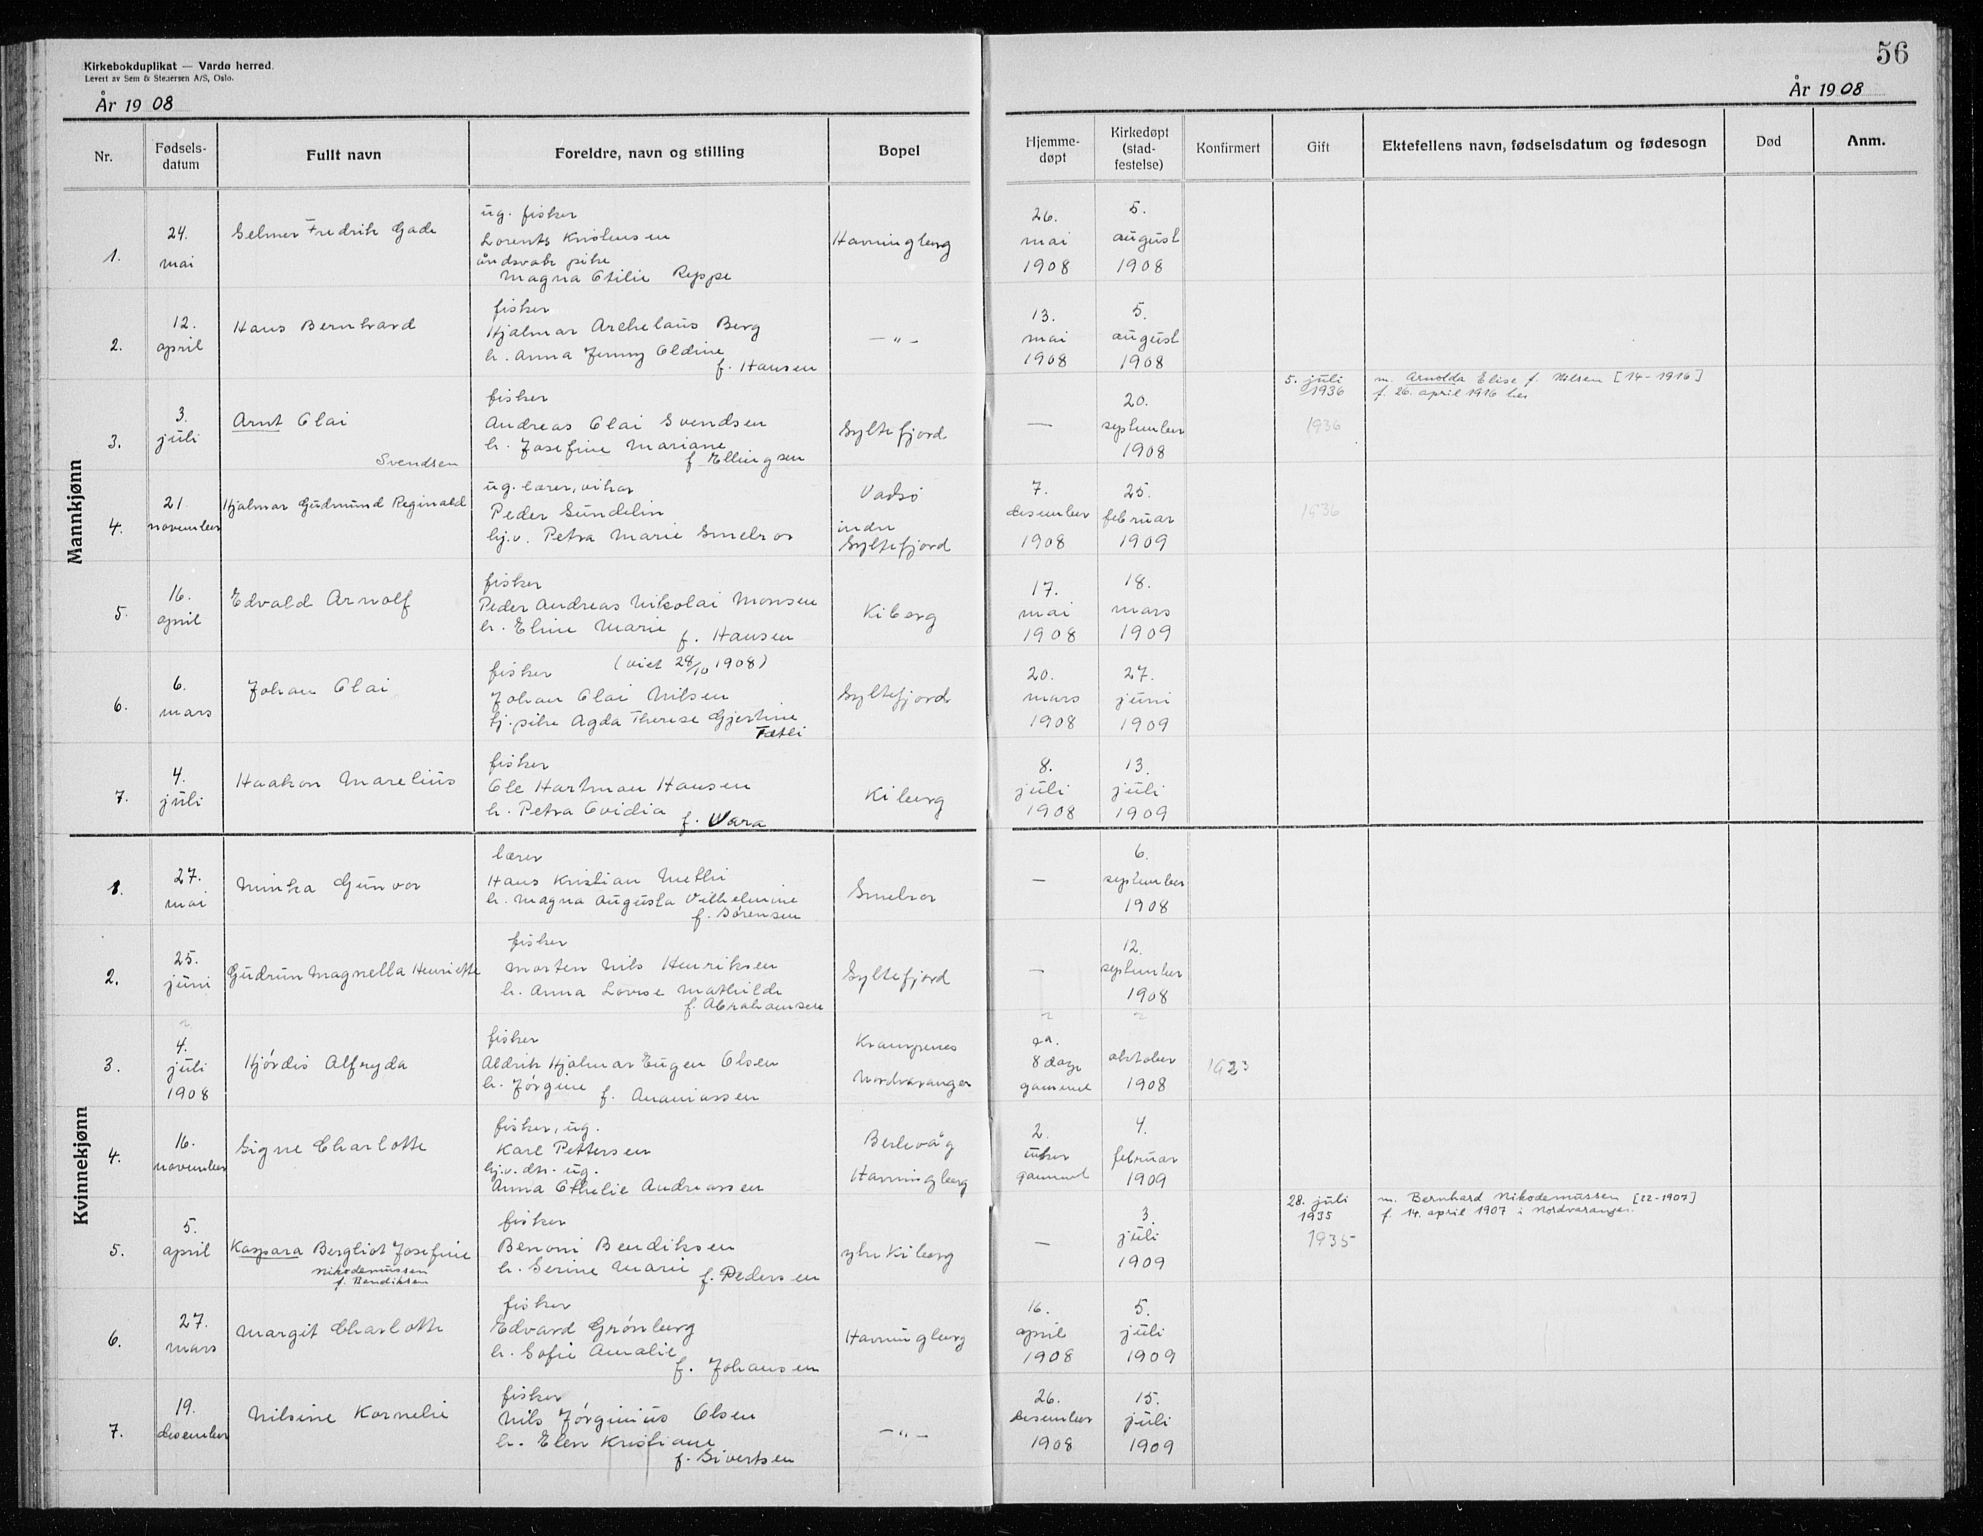 56
Kirkebokduplikat — Vardø herred.
Levert av Sem & Stenersen A/S, Oslo.
År 1908
År 1908
Nr. Fødsels-datum Fullt navn Foreldre, navn og stilling Bopel Hjemme-døpt Kirkedøpt (stad-festelse) Konfirmert Gift Ektefellens navn, fødselsdatum og fødesogn Død Anm.
Mannkjønn
1. 24. mai
Selmer Fredrik Gade
ug. fisker
Lorents Kristensen
åndsvak pike
Magna Otilie Reppe
Havningberg
26. mai 1908
5. august 1908
2. 12. april
Hans Bernhard
fisker
Hjalmar Archelaus Berg
h. Anna Jenny Oldine
f. Hansen
— „ —
13. mai 1908
5. august 1908
3. 3. juli
Arnt Olai
Svendsen
fisker
Andreas Olai Svendsen
h. Josefine Mariane
f. Ellingsen
Syltefjord
—
20. september 1908
5. juli 1936
1936
m. Arnolda Elise f. Nilsen [14-1916]
f. 26. april 1916 her
4. 21. november
Hjalmar Gudmund Reginald
ug. lærer, vikar
Peder Sundelin
hj.v. Petra Marie Smelror
Vadsø
indre
Syltefjord
7. desember 1908
25. februar 1909
1936
5. 16. april
Edvald Arnolf
fisker
Peder Andreas Nikolai Monsen
h. Eline Marie
f. Hansen
Kiberg
17. mai 1908
18. mars 1909
6. 6. mars
Johan Olai
fisker (viet 28/10 1908)
Johan Olai Nilsen
tj. pike Agda Therese Gjertine
Tætli
Syltefjord
20. mars 1908
27. juni 1909
7. 4. juli
Haakon Marelius
fisker
Ole Hartman Hansen
h. Petra Ovidia
f. Vara
Kiberg
8. juli 1908
13. juli 1909
Kvinnekjønn
1. 27. mai
Minka Gunvor
lærer
Hans Kristian Methi
h. Magna Augusta Vilhelmine
f. Sørensen
Smelror
—
6. september 1908
2. 25. juni
Gudrun Magnella Henriette
fisker
Morten Nils Henriksen
h. Anna Lovise Mathilde
f. Abrahamsen
Syltefjord
—
12. september 1908
3. 4. juli 1908
Hjørdis Alfryda
fisker
Aldrik Hjalmar Eugen Olsen
h. Jørgine
f. Ananiassen
Krampenes
Nordvaranger
ca. 8 dage gammel
oktober 1908
1923
4. 16. november
Signe Charlotte
fisker, ug.
Karl Pettersen
hj.v. dtr. ug.
Anna Othelie Andreassen
Berlevåg
Havningberg
2. uker gammel
4. februar 1909
5. 5. april
Kaspara Bergliot Josefine
Nikodemussen
f. Bendiksen
fisker
Benoni Bendiksen
h. Serine Marie
f. Pedersen
ytre Kiberg
—
3. juli 1909
28. juli 1935
1935
m. Bernhard Nikodemussen [22-1907]
f. 14. april 1907 i Nordvaranger.
6. 27. mars
Margit Charlotte
fisker
Edvard Grønberg
h. Sofie Amalie
f. Johansen
Havningberg
16. april 1908
5. juli 1909
7. 19. desember
Nilsine Kornelie
fisker
Nils Jørginius Olsen
h. Elen Kristiane
f. Sivertsen
— „ —
26. desember 1908
15. juli 1909